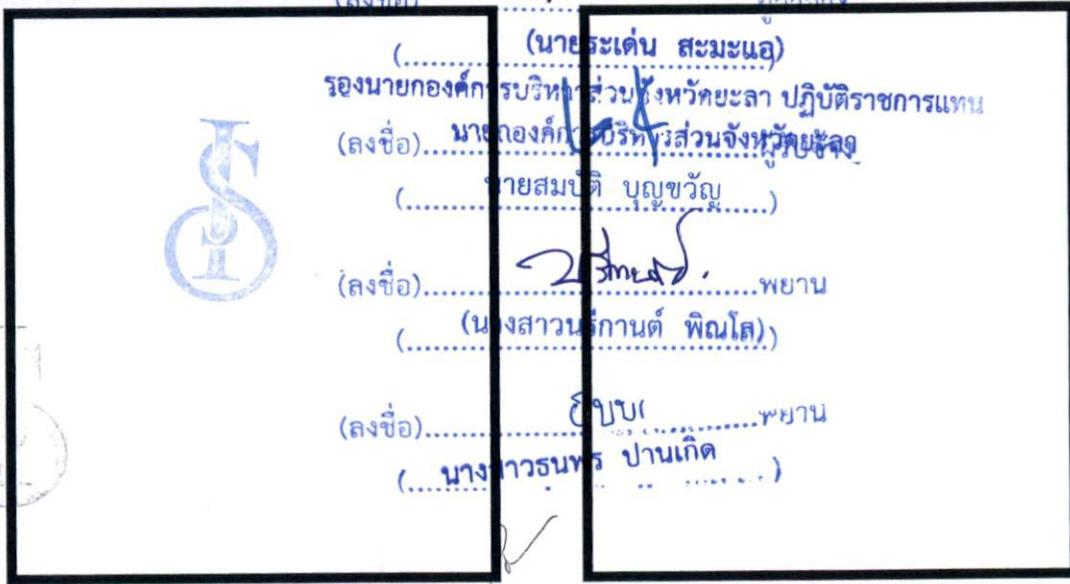 (ลงชื่อ)
(นายระเด่น สะมะแอ)
รองนายกองค์การบริหารส่วนจังหวัดยะลา ปฏิบัติราชการแทน
(ลงชื่อ) นายกองค์การบริหารส่วนจังหวัดยะลา ผู้รับจ้าง
(นายสมบัติ บุญขวัญ)
(ลงชื่อ) พยาน
(นางสาวนรีกานต์ พิณโส)
(ลงชื่อ) พยาน
(นางสาวธนพร ปานเกิด)